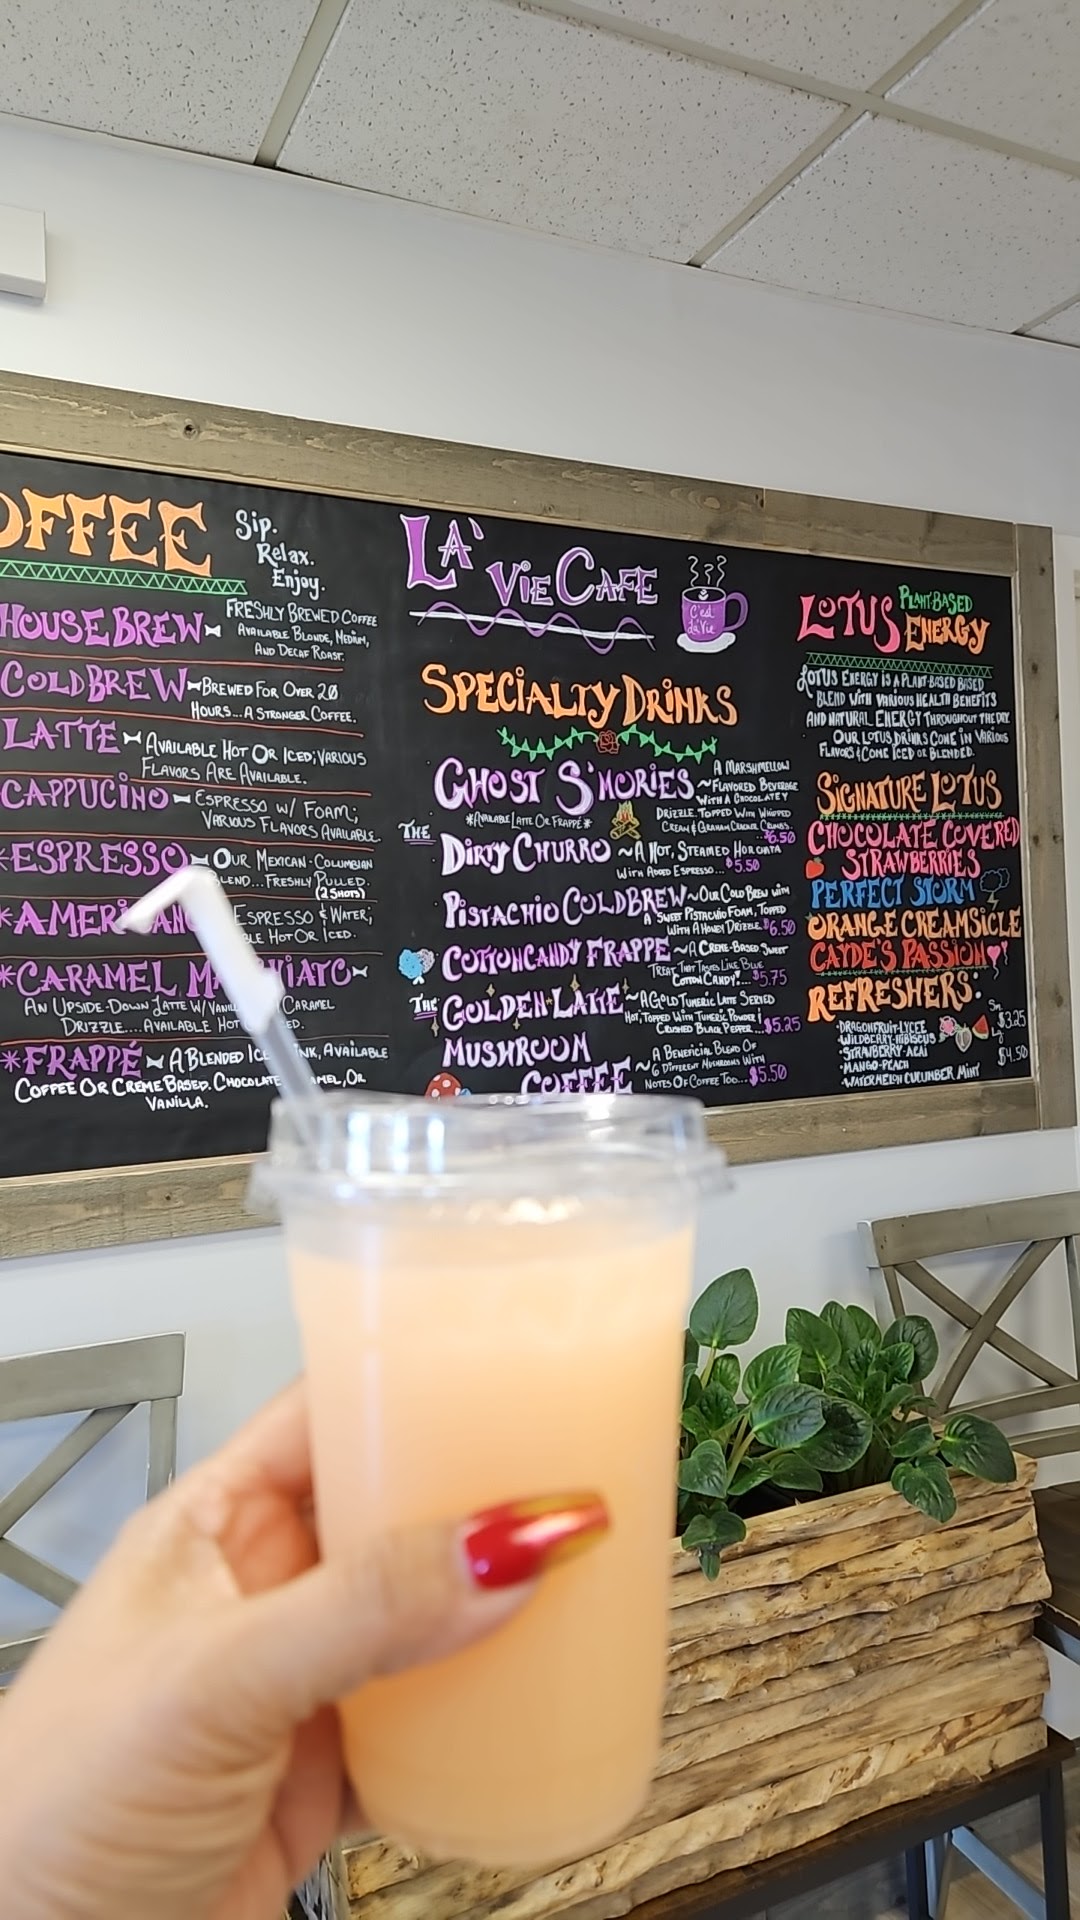 OFFEE
Sip.
Relax.
Enjoy.
HOUSE BREW
FRESHLY BREWED COFFEE
AVAILABLE BLONDE, MEDIUM,
AND DECAF ROAST.
COLD BREW
BREWED FOR OVER 20
HOURS...A STRONGER COFFEE.
LATTE
AVAILABLE HOT OR ICED; VARIOUS
FLAVORS ARE AVAILABLE.
CAPPUCINO
ESPRESSO W/ FOAM;
VARIOUS FLAVORS AVAILABLE
*ESPRESSO
OUR MEXICAN-COLUMBIAN
BLEND...FRESHLY PULLED.
(2 SHOTS)
*AMERICANO
ESPRESSO & WATER;
BLE HOT OR ICED.
*CARAMEL M HIATO
AN UPSIDE-DOWN LATTE W/VANIL CARAMEL
DRIZZLE....AVAILABLE HOT CED.
*FRAPPÉ
A BLENDED ICE INK, AVAILABLE
COFFEE OR CREME BASED. CHOCOLATE MEL, OR
VANILLA.
LA' VIE CAFE
C'est
La Vie
SPECIALTY DRINKS
GHOST S'MORIES ~ A MARSHMELLOW
FLAVORED BEVERAGE
WITH A CHOCOLATEY
DRIZZLE. TOPPED WITH WHIPPED
CREAM & GRAHAM CRACKER CRUMBS.
...$6.50
*AVAILABLE LATTE OR FRAPPÉ*
THE DIRTY CHURRO ~ A HOT, STEAMED HORCHATA
WITH ADDED ESPRESSO... $5.50
PISTACHIO COLD BREW ~ OUR COLD BREW WITH
A SWEET PISTACHIO FOAM, TOPPED
WITH A HONEY DRIZZLE. $6.50
COTTON CANDY FRAPPE ~ A CREME-BASED SWEET
TREAT THAT TASTES LIKE BLUE
COTTON CANDY!.... $5.75
THE GOLDEN LATTE ~ A GOLD TUMERIC LATTE SERVED
HOT, TOPPED WITH TUMERIC POWDER &
CRUSHED BLACK PEPPER...$5.25
MUSHROOM
COFFEE ~ A BENEFICIAL BLEND OF
6 DIFFERENT MUSHROOMS WITH
NOTES OF COFFEE TOO... $5.50
LOTUS PLANT-BASED
ENERGY
LOTUS ENERGY IS A PLANT-BASED BASED
BLEND WITH VARIOUS HEALTH BENEFITS
AND NATURAL ENERGY THROUGHOUT THE DAY.
OUR LOTUS DRINKS COME IN VARIOUS
FLAVORS & COME ICED OR BLENDED.
SIGNATURE LOTUS
CHOCOLATE COVERED
STRAWBERRIES
PERFECT STORM
ORANGE CREAMSICLE
CAYDE'S PASSION
REFRESHERS:
-DRAGONFRUIT-LYCEE
-WILDBERRY-HIBISCUS
-STRAWBERRY-ACAI
-MANGO-PEACH
-WATERMELON CUCUMBER MINT
Sm
$3.25
Lg
$4.50